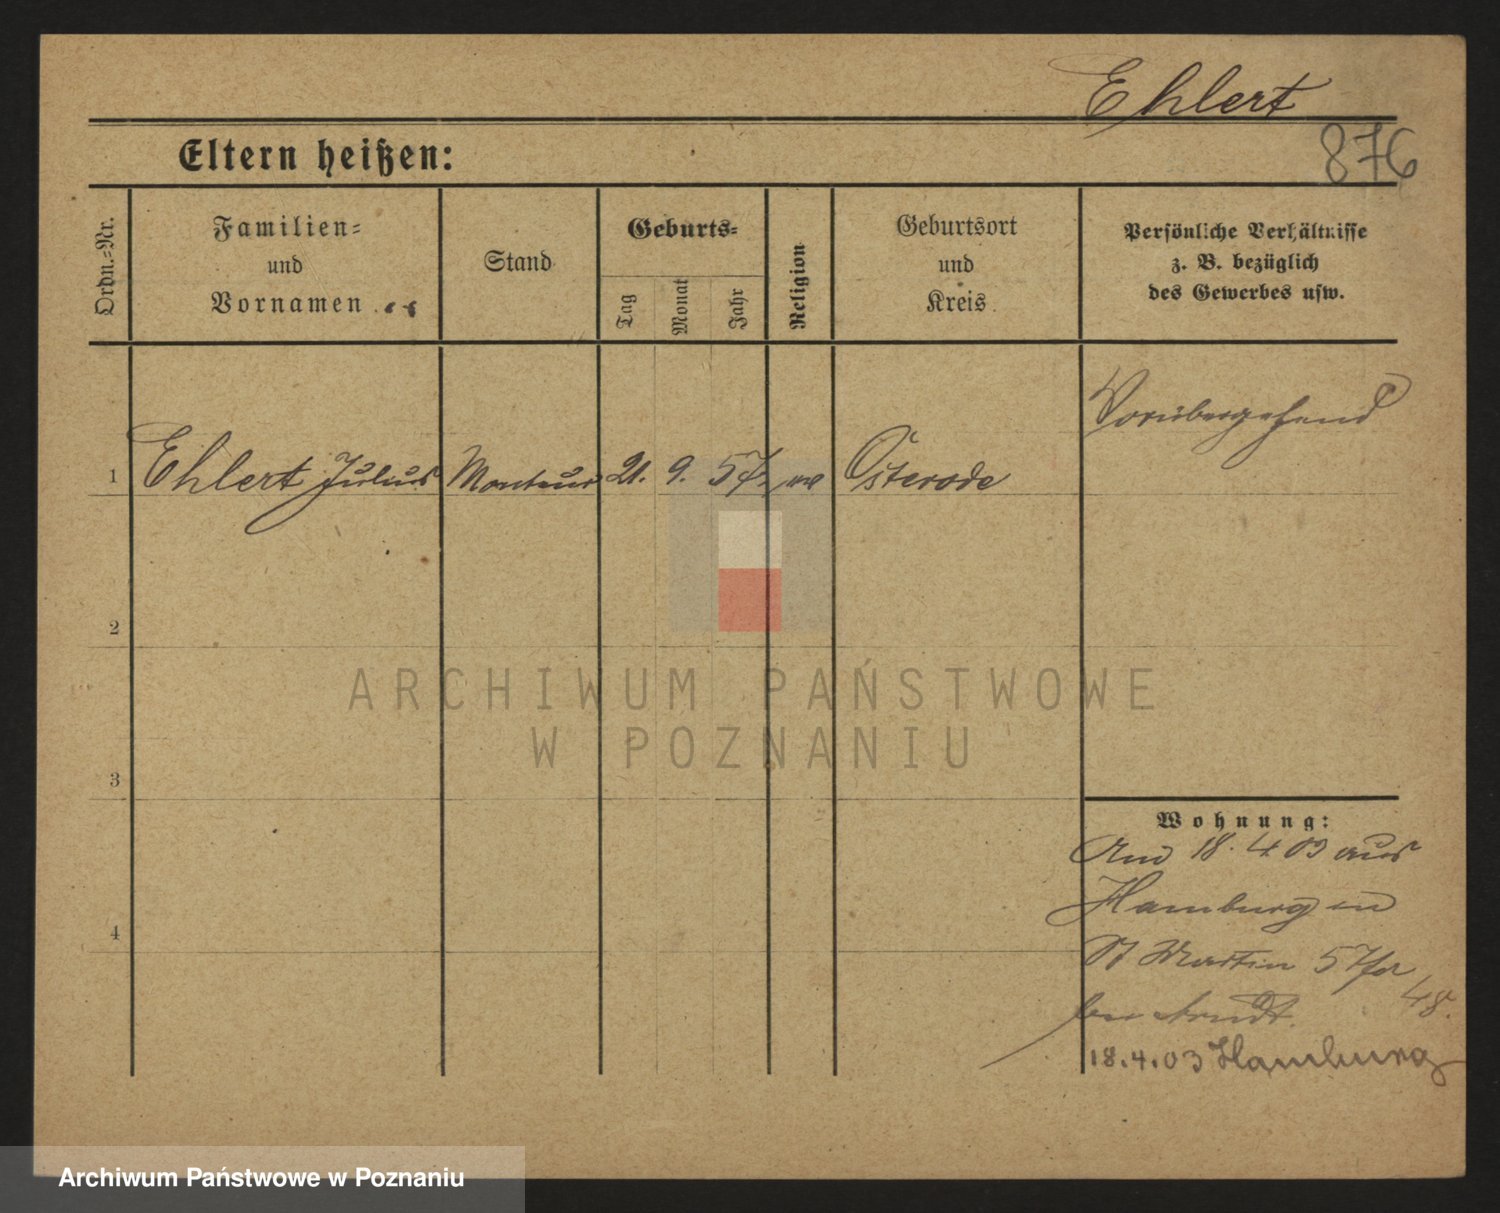 Ehlert
Eltern heißen:
876
Ordn.-Nr.
Familien-
und
Vornamen
Stand
Geburts-
Tag
Monat
Jahr
Religion
Geburtsort
und
Kreis
Persönliche Verhältnisse
z. B. bezüglich
des Gewerbes usw.
Vorübergehend
1 Ehlert Julius Monteur 21. 9. 57. Osterode
2
ARCHIWUM PAŃSTWOWE
W POZNANIU
3
Wohnung:
18. 4 03 aus
Hamburg in
St Martin 57
48.
4
bei Arndt.
18.4.03 Hamburg
Archiwum Państwowe w Poznaniu